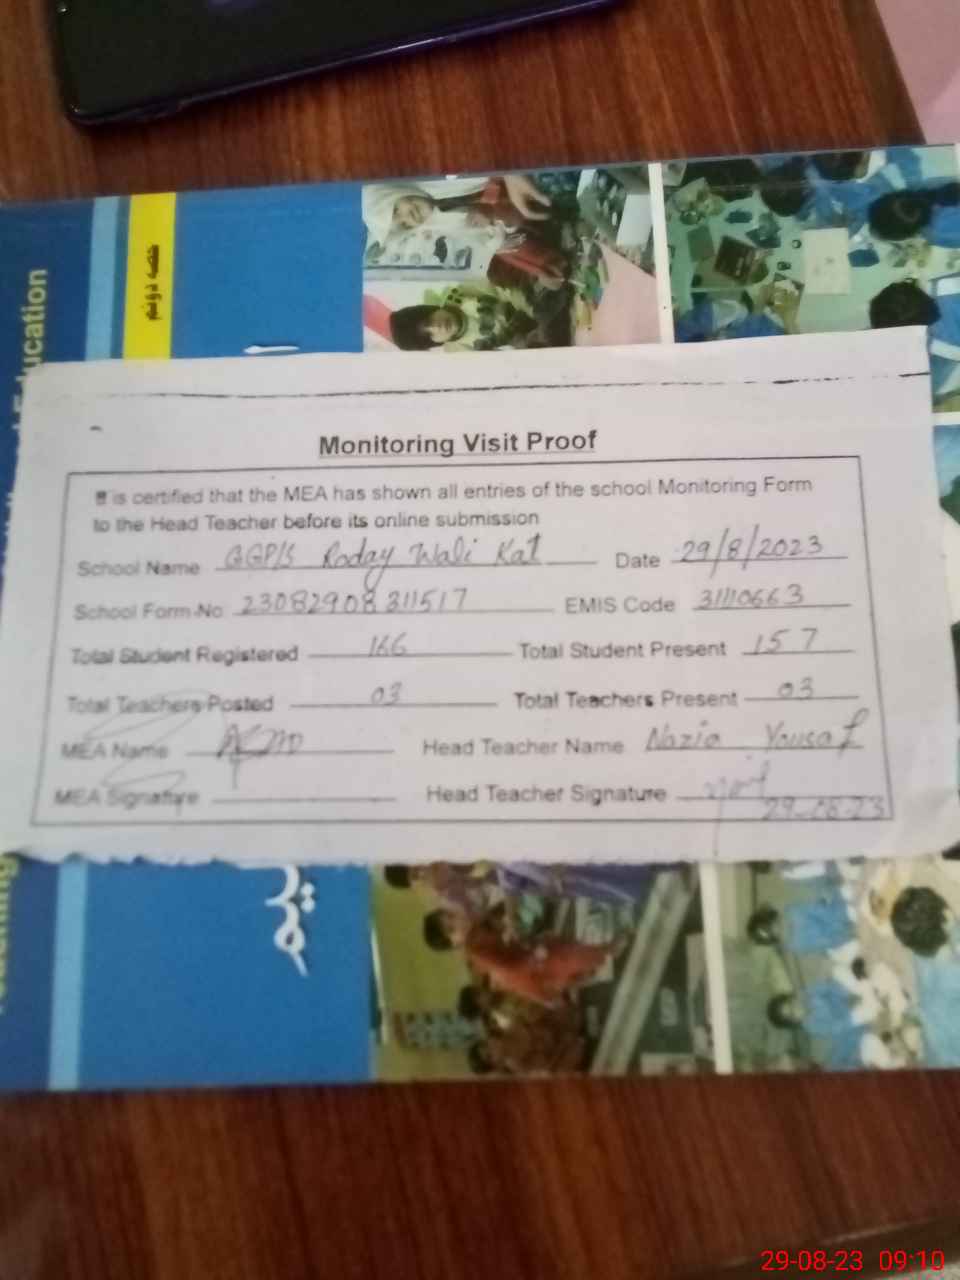 حصہ دوئم
Education
Monitoring Visit Proof
It is certified that the MEA has shown all entries of the school Monitoring Form
to the Head Teacher before its online submission
School Name GGP/S Roday Wali Kat Date 29/8/2023
School Form No 23082908311517 EMIS Code 31110663
Total Student Registered 166 Total Student Present 157
Total Teachers Posted 03 Total Teachers Present 03
MEA Name Head Teacher Name Nazia Yousaf
MEA Signature Head Teacher Signature
29-08-23
29-08-23 09:10